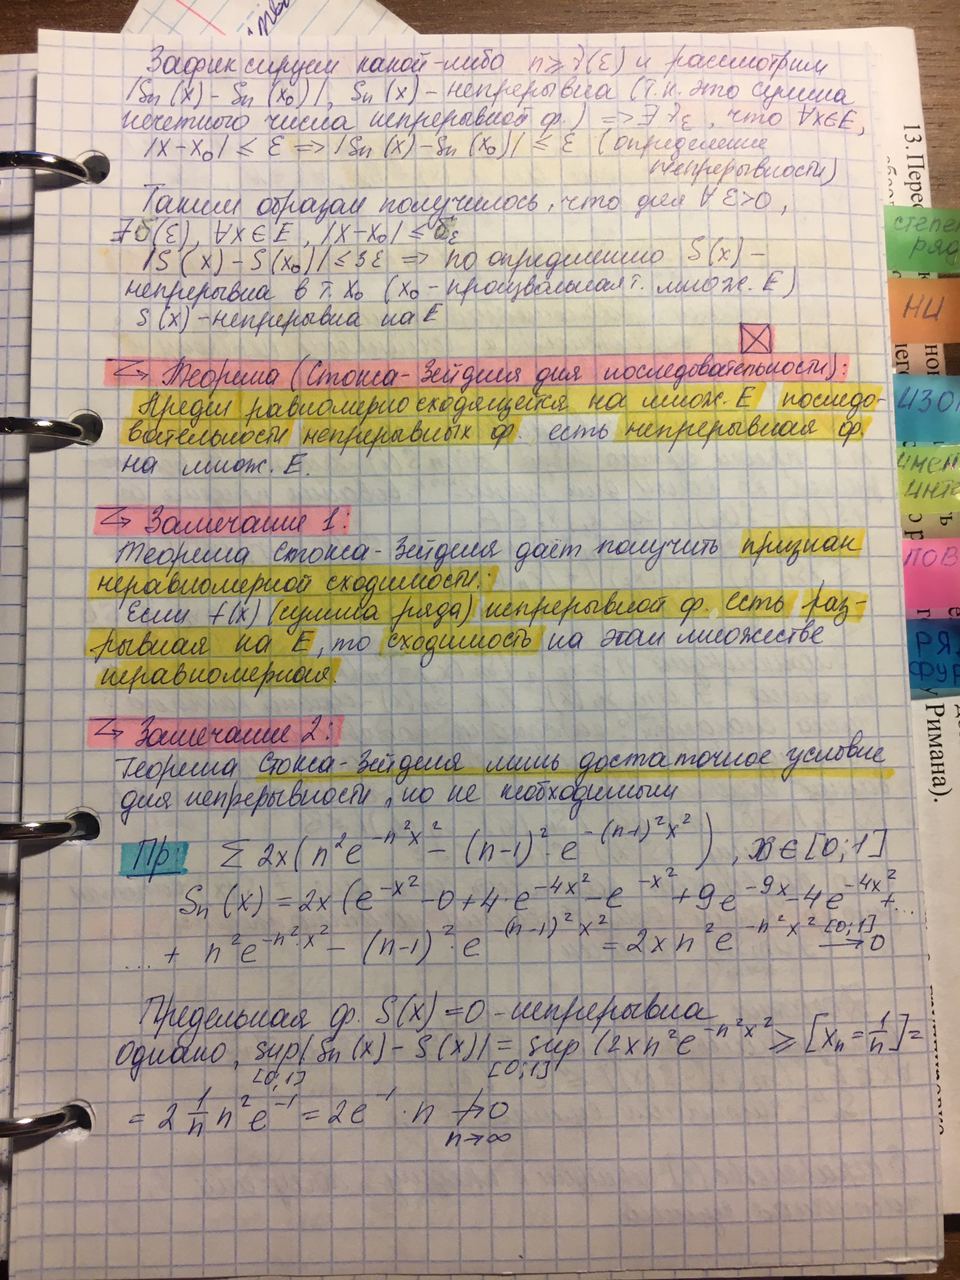 Зафиксируем какой-либо n ≥ ν(ε) и рассмотрим
|Sn(x) - Sn(x₀)|, Sn(x) - непрерывна (т.к. это сумма
нечетного числа непрерывной ф.) => ∃ γε, что ∀x∈E,
|x-x₀| ≤ ε => |Sn(x) - Sn(x₀)| ≤ ε (определение
непрерывности)
Таким образом получилось, что для ∀ ε>0,
∃δ(ε), ∀x∈E, |x-x₀| ≤ δε
|S(x) - S(x₀)| ≤ 3ε => по определению S(x) -
непрерывна в т. x₀ (x₀ - произвольная т. множ. E)
S(x) - непрерывна на E
Теорема (Стокса-Зейделя для последовательности):
Предел равномерно сходящейся на множ. E последо-
вательности непрерывных ф. есть непрерывная ф.
на множ. E.
Замечание 1:
Теорема Стокса-Зейделя даёт получить признак
неравномерной сходимости:
Если f(x) (сумма ряда) непрерывной ф. есть раз-
рывная на E, то сходимость на этом множестве
неравномерная.
Замечание 2:
Теорема Стокса-Зейделя лишь достаточное условие
для непрерывности, но не необходимым
Пр: Σ 2x(n²e^{-n²x²} - (n-1)²·e^{-(n-1)²x²}), x∈[0;1]
Sn(x) = 2x(e^{-x²} - 0 + 4·e^{-4x²} - e^{-x²} + 9e^{-9x} - 4e^{-4x²} + ...
... + n²e^{-n²x²} - (n-1)²·e^{-(n-1)²x²} = 2xn²e^{-n²x²} →[0;1] 0
Предельная ф. S(x) = 0 - непрерывна
Однако, sup|Sn(x) - S(x)| = sup (2xn²e^{-n²x²} ≥ [xn = 1/n] =
[0;1] [0;1]
= 2 1/n n²e^{-1} = 2e^{-1}·n ↛ 0
n→∞
13. Перес
степен
ряд
НИ
ИЗОП
имен
инте
ПОВ
РЯД
ФУР
у Римана).